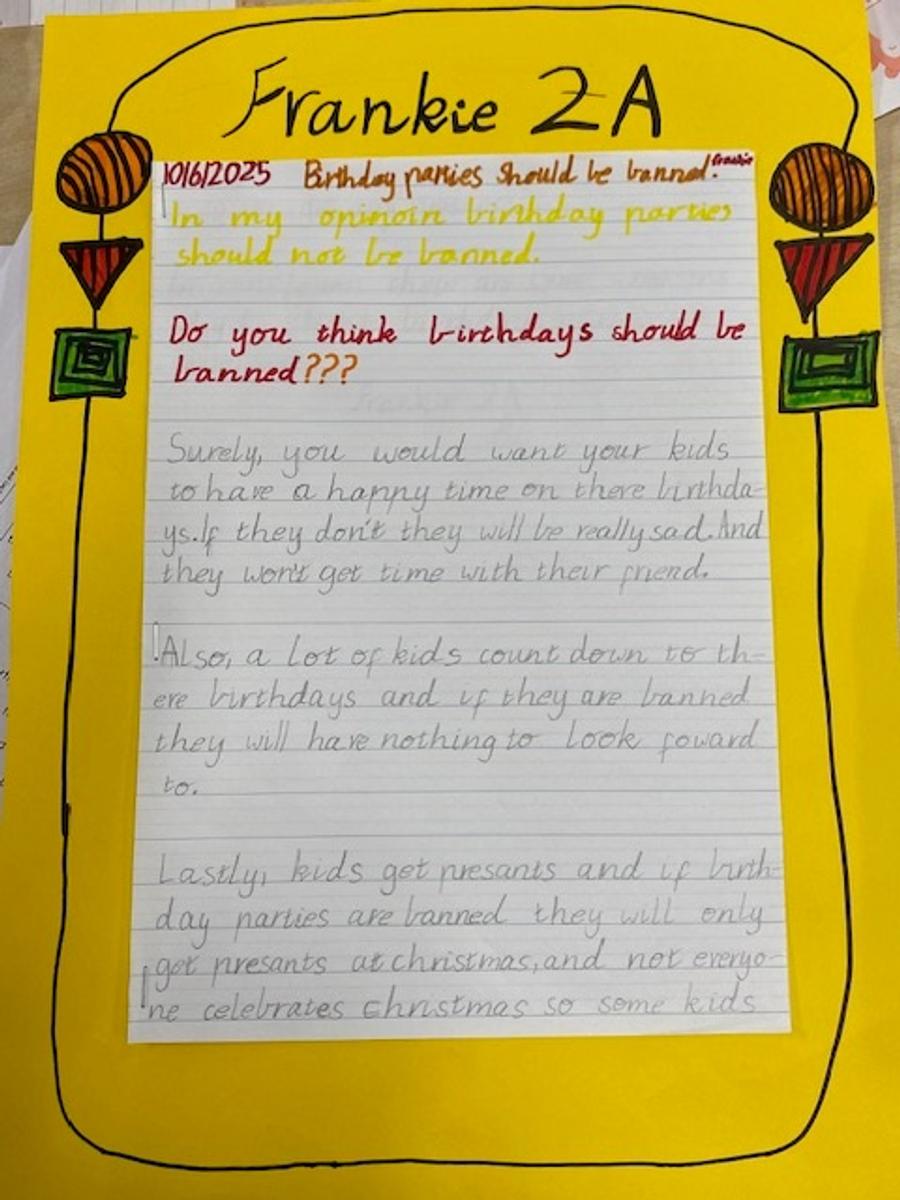 Frankie 2A
10/6/2025 Birthday parties should be banned. Frankie
In my opinoin birthday parties
should not be banned.
Do you think birthdays should be
banned???
Surely, you would want your kids
to have a happy time on there birthda-
ys.If they don't they will be really sad. And
they won't get time with their friend.
Also, a lot of kids count down to th-
ere birthdays and if they are banned
they will have nothing to look foward
to.
Lastly, kids get presants and if birth-
day parties are banned they will only
get presants at christmas, and not everyo-
ne celebrates christmas so some kids